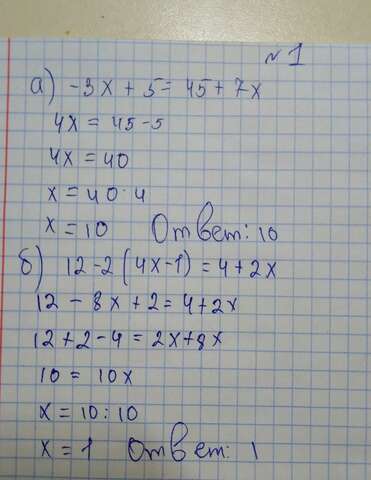 №1
а) -3x + 5 = 45 + 7x
4x = 45-5
4x = 40
x = 40·4
x = 10 Ответ: 10
б) 12-2(4x-1) = 4+2x
12 - 8x + 2 = 4+2x
12+2-4 = 2x+8x
10 = 10x
x = 10:10
x = 1 Ответ: 1